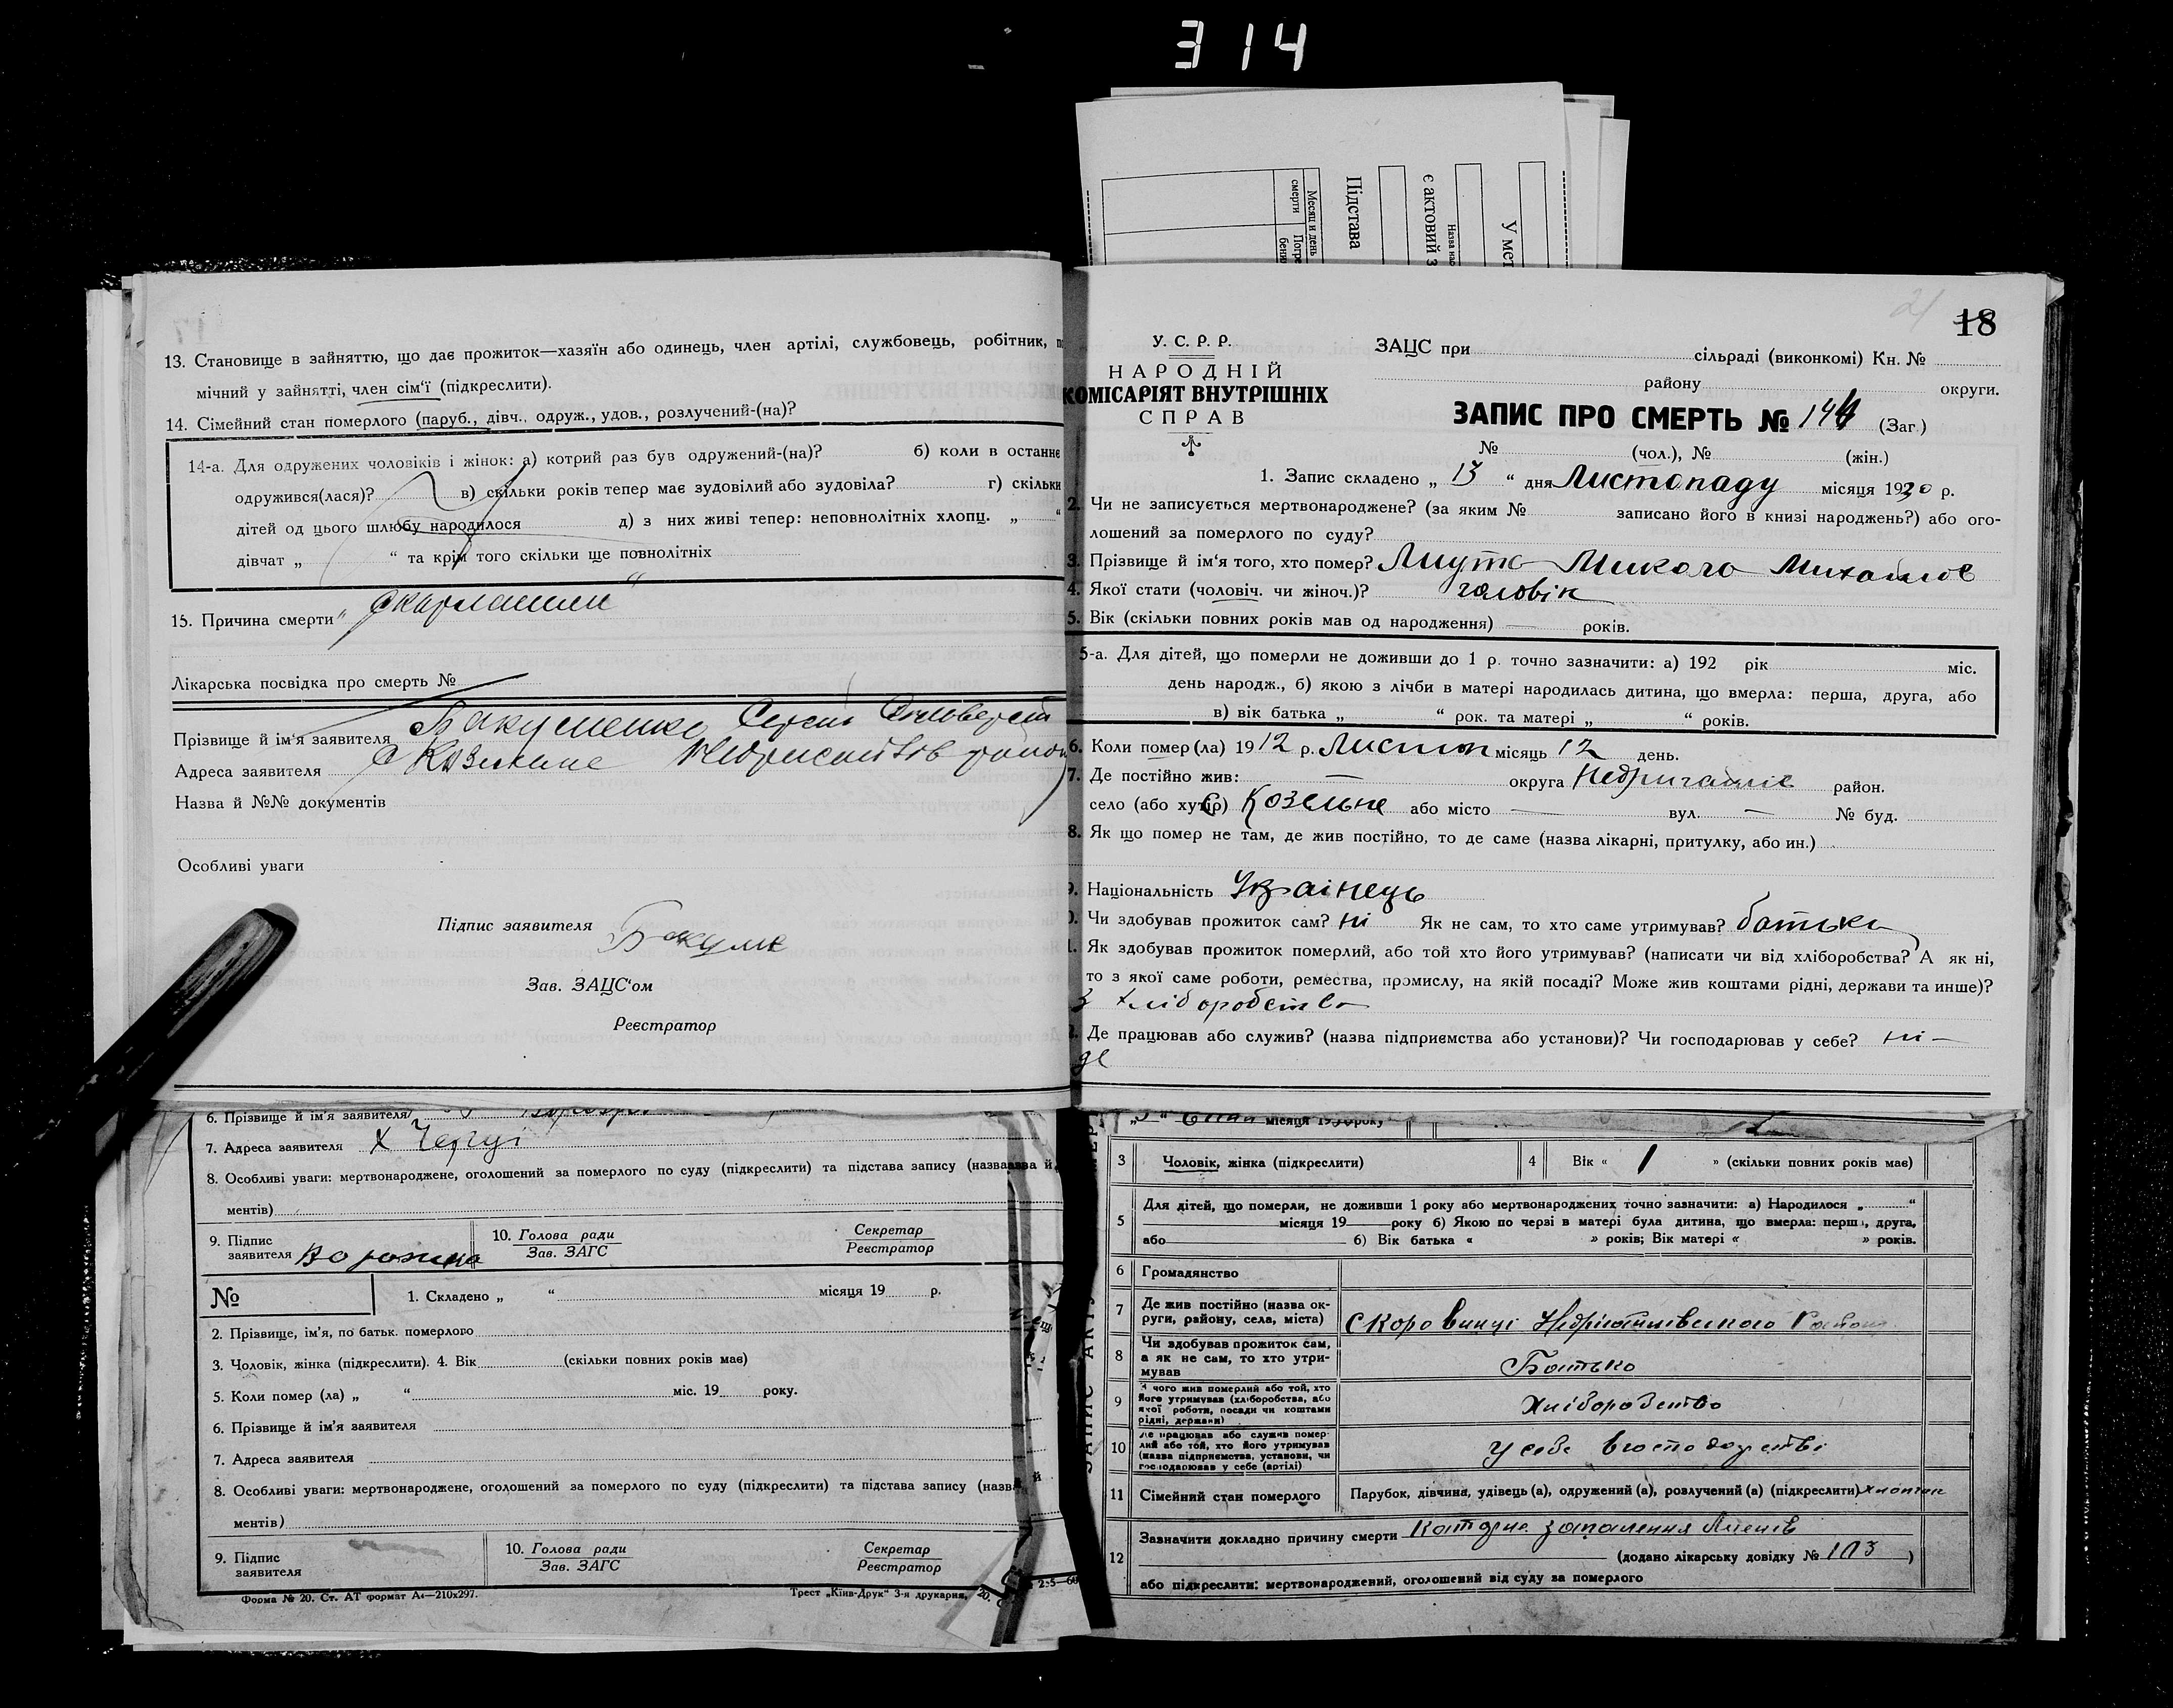 314
Месяц и день
смерти
Підстава
є актовий з
У мет
13. Становище в зайняттю, що дає прожиток—хазяїн або одинець, член артілі, службовець, робітник,
мічний у зайнятті, член сім'ї (підкреслити).
14. Сімейний стан померлого (паруб., дівч., одруж., удов., розлучений-(на)?
14-а. Для одружених чоловіків і жінок: а) котрий раз був одружений-(на)? б) коли в останнє
одружився(лася)? в) скільки років тепер має зудовілий або зудовіла? г) скільки
дітей од цього шлюбу народилося д) з них живі тепер: неповнолітніх хлопц. „ “
дівчат „ “ та крім того скільки ще повнолітніх
15. Причина смерти
Лікарська посвідка про смерть №
Прізвище й ім'я заявителя Бакуменко Сергій
Адреса заявителя с Козельне
Назва й №№ документів
Особливі уваги
Підпис заявителя Бакуме
Зав. ЗАЦС'ом
Реєстратор
6. Прізвище й ім'я заявителя
7. Адреса заявителя х
8. Особливі уваги: мертвонароджене, оголошений за померлого по суду (підкреслити) та підстава запису
ментів)
9. Підпис
заявителя
10. Голова ради
Зав. ЗАГС
Секретар
Реєстратор
№
1. Складено „ “ місяця 19 р.
2. Прізвище, ім'я, по батьк. померлого
3. Чоловік, жінка (підкреслити). 4. Вік (скільки повних років має)
5. Коли помер (ла) „ “ міс. 19 року.
6. Прізвище й ім'я заявителя
7. Адреса заявителя
8. Особливі уваги: мертвонароджене, оголошений за померлого по суду (підкреслити) та підстава запису (назва
ментів)
9. Підпис
заявителя
10. Голова ради
Зав. ЗАГС
Секретар
Реєстратор
Форма № 20. Ст. АТ формат А4—210х297.
Трест „Київ-Друк“ 3-я друкарня,
21
18
У. С. Р. Р.
НАРОДНІЙ
КОМІСАРІЯТ ВНУТРІШНІХ
СПРАВ
ЗАЦС при сільраді (виконкомі) Кн. №
району округи.
ЗАПИС ПРО СМЕРТЬ № 144 (Заг.)
№ (чол.), № (жін.)
1. Запис складено „ 13 “ дня Листопаду місяця 1930 р.
2. Чи не записується мертвонароджене? (за яким № записано його в книзі народжень?) або ого-
лошений за померлого по суду?
3. Прізвище й ім'я того, хто помер? Микола
4. Якої стати (чоловіч. чи жіноч.)? чоловік
5. Вік (скільки повних років мав од народження) — років.
5-а. Для дітей, що померли не доживши до 1 р. точно зазначити: а) 192 рік міс.
день народж., б) якою з лічби в матері народилась дитина, що вмерла: перша, друга, або
в) вік батька „ “ рок. та матері „ “ років.
6. Коли помер (ла) 1912 р. Листоп місяць 12 день.
7. Де постійно жив: — округа район.
село (або хутір) Козельне або місто — вул. — № буд.
8. Як що помер не там, де жив постійно, то де саме (назва лікарні, притулку, або ин.)
9. Національність Українець
Чи здобував прожиток сам? ні Як не сам, то хто саме утримував? батько
Як здобував прожиток померлий, або той хто його утримував? (написати чи від хліборобства? А як ні,
то з якої саме роботи, ремества, промислу, на якій посаді? Може жив коштами рідні, держави та инше)?
з хліборобства
Де працював або служив? (назва підприємства або установи)? Чи господарював у себе? ні-
де
місяця 1930 року
3 Чоловік, жінка (підкреслити) 4 Вік « 1 » (скільки повних років має)
5 Для дітей, що померли, не доживши 1 року або мертвонароджених точно зазначити: а) Народилося „ “
місяця 19 року б) Якою по черзі в матері була дитина, що вмерла: перша, друга,
або 6) Вік батька « » років; Вік матері « » років.
6 Громадянство
7 Де жив постійно (назва ок-
руги, району, села, міста)
8 Чи здобував прожиток сам,
а як не сам, то хто утри-
мував
Батько
9 З чого жив померлий або той, хто
його утримував (хліборобства, або
якої роботи, посади чи коштами
рідні, держави)
Хліборобство
10 Де працював або служив помер-
лий або той, хто його утримував
(назва підприємства, установи, чи
господарював у себе (артілі)
у себе в господарстві
11 Сімейний стан померлого Парубок, дівчина, удівець (а), одружений (а), розлучений (а) (підкреслити) хлопчик
12 Зазначити докладно причину смерти запалення
(додано лікарську довідку № 103 )
або підкреслити: мертвонароджений, оголошений від суду за померлого